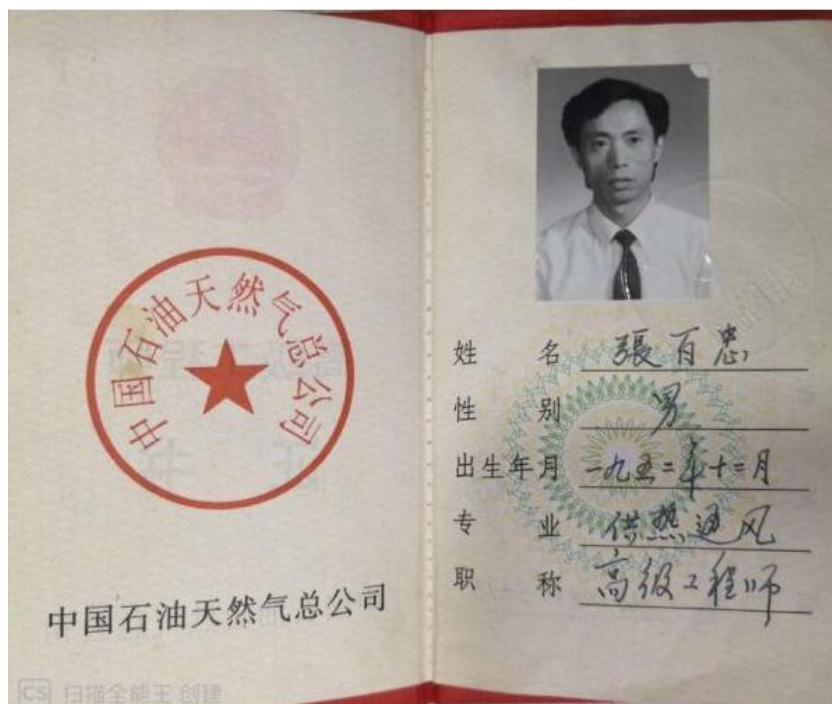 中国石油天然气总公司
中国石油天然气总公司
姓名 張百忠
性别 男
出生年月 一九五二年十二月
专业 供热通风
职称 高级工程师
CS 扫描全能王 创建